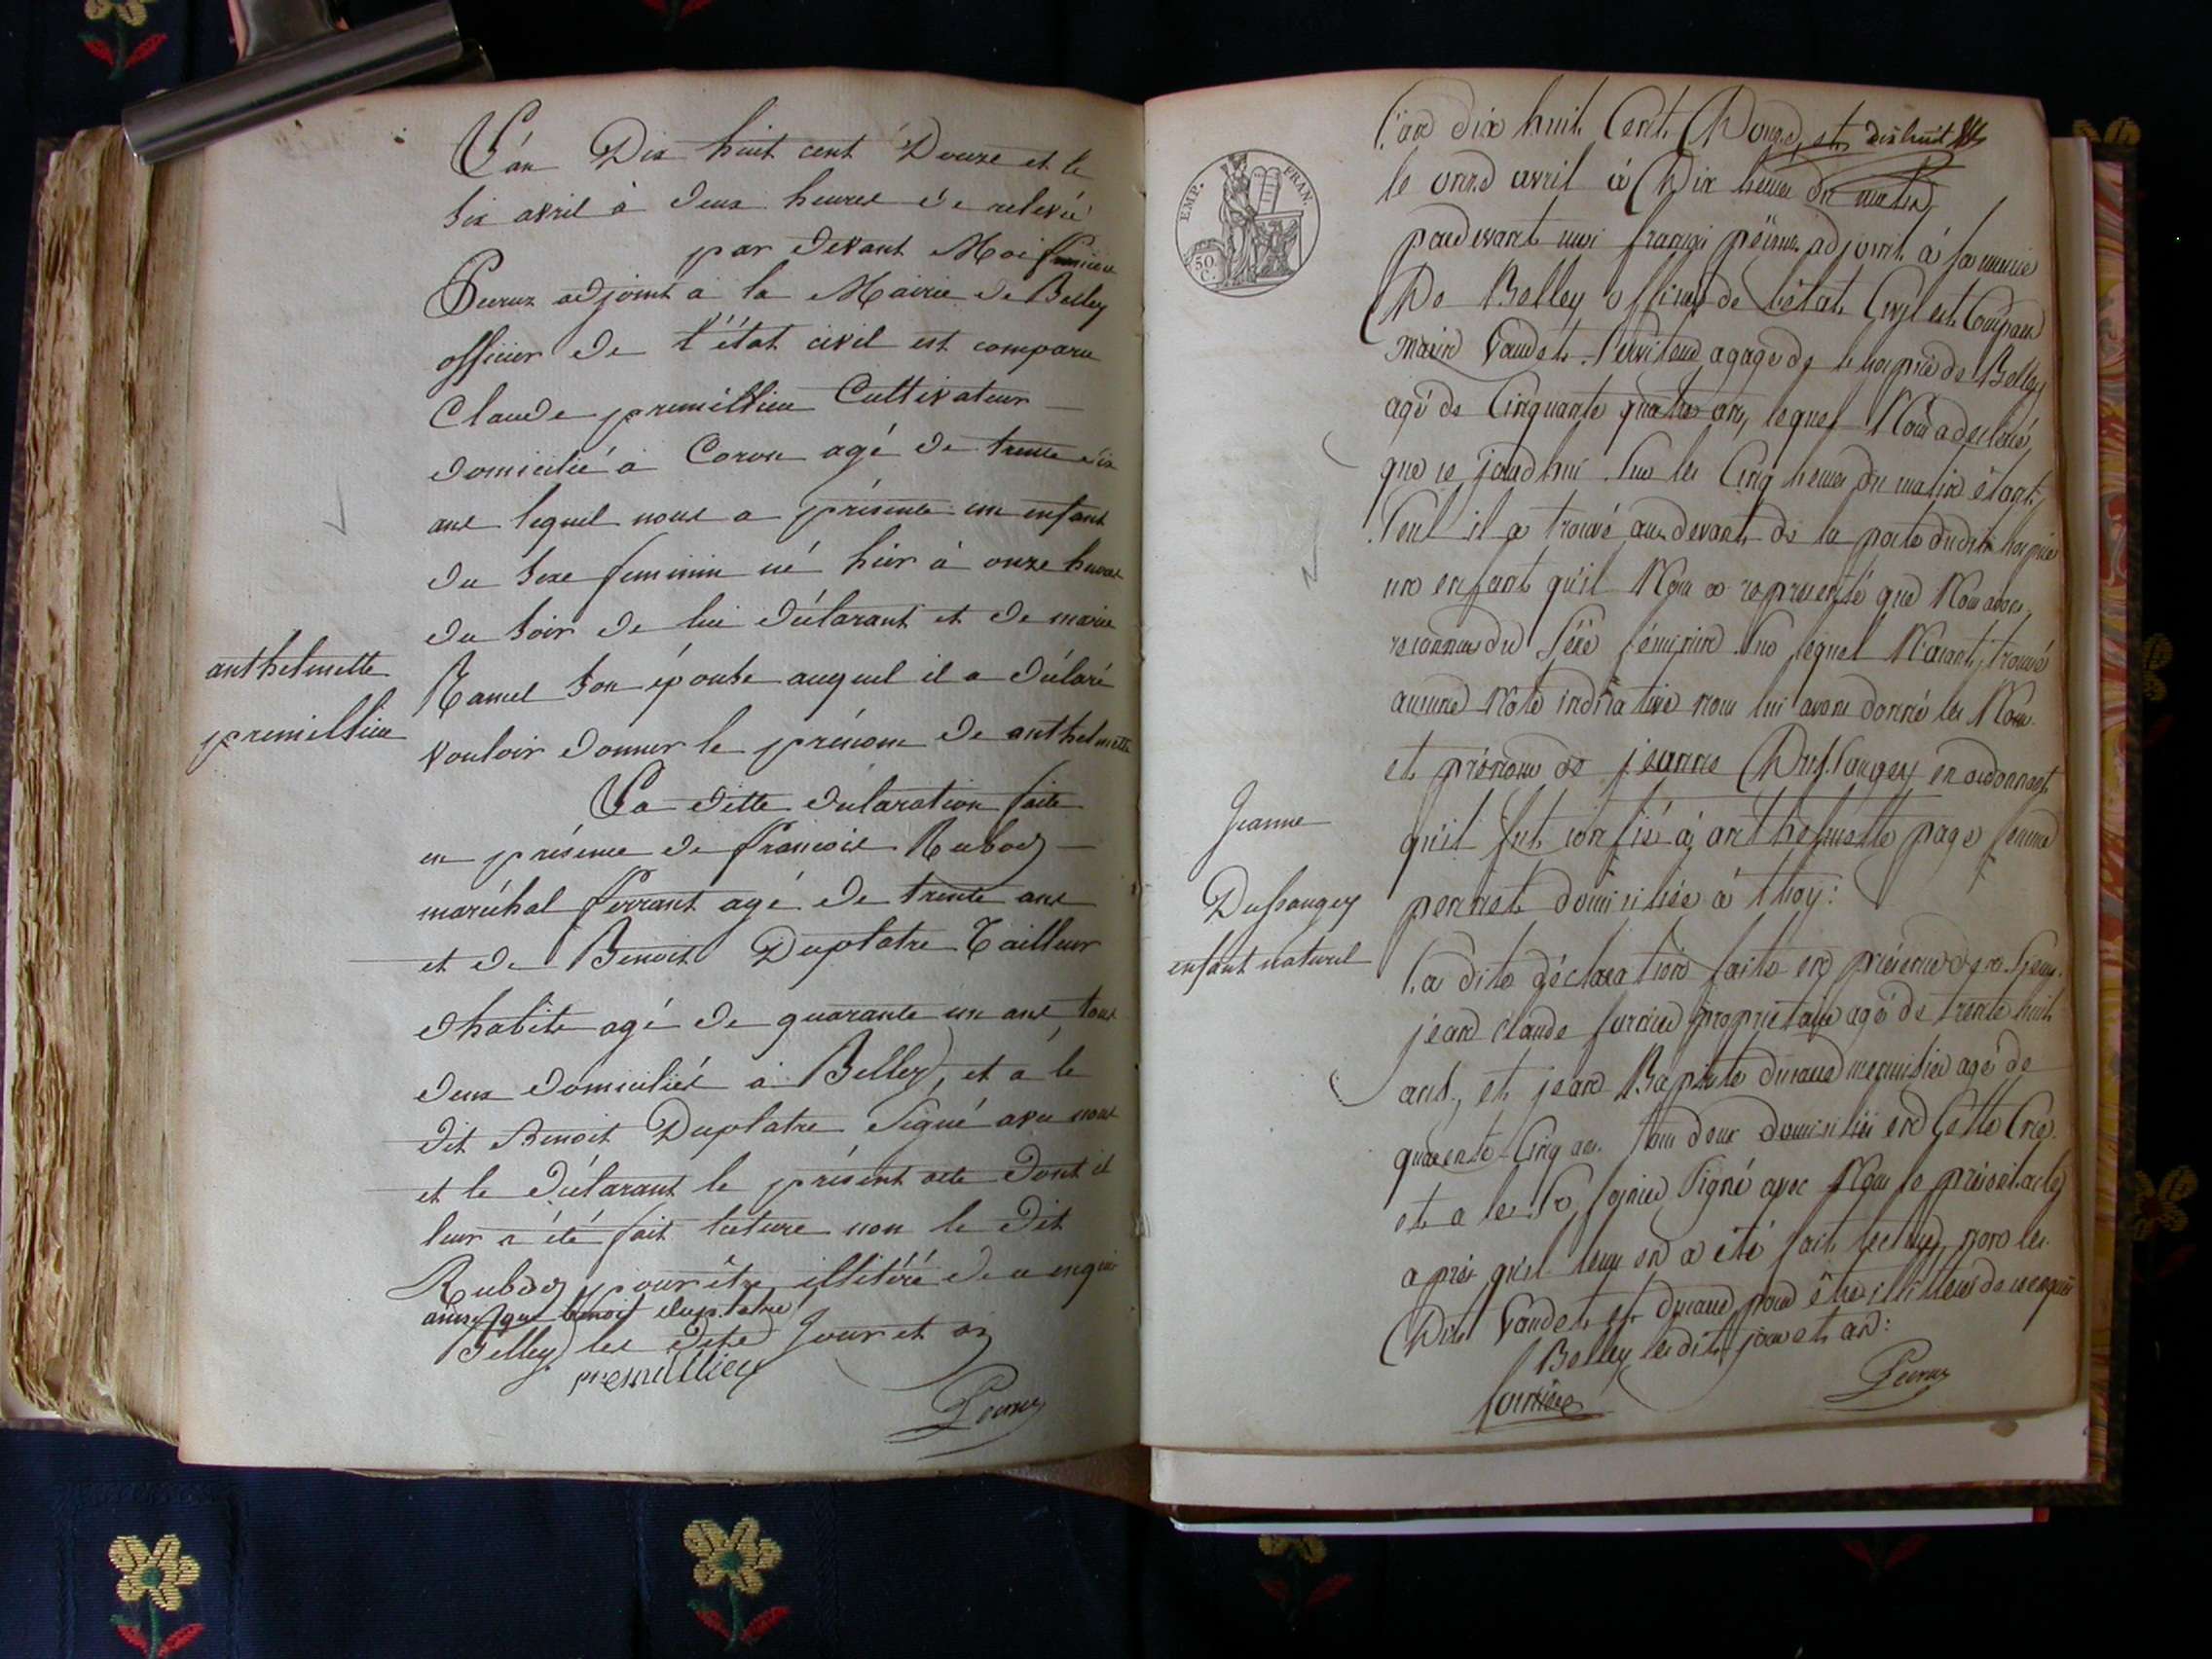 L'an Dix huit cent Douze et le
six avril à deux heures de relevée
par devant Moi
Peruz adjoint à la Mairie de Belley
officier de l'état civil est comparu
Claude premillieu Cultivateur
domicilié à Coron agé de trente six
ans lequel nous a présenté un enfant
du sexe feminin né hier à onze heures
du soir de lui déclarant et de marie
Ramel son épouse auquel il a déclaré
vouloir donner le prénom de anthelmette
anthelmette
premillieu
La ditte déclaration faite
en présence de francois Rubod
maréchal ferrant agé de trente ans
et de Benoit Duplatre Tailleur
d'habits agé de quarante un ans tous
deux domiciliés à Belley, et a le
dit Benoit Duplatre signé avec nous
et le déclarant le présent acte dont il
leur a été fait lecture non le dit
Rubod pour être illitéré de ce enquis
ainsi que benoit duplatre
Belley les dits Jour et an
premillieu
Peruz
EMP. FRAN.
50 C.
L'an dix huit Cent Douze, et dix huit
le onze avril à Dix heures du matin
pardevant moi françois péruz adjoint à la mairie
De Belley officier de l'état Civil est Comparu
Vaudet Serviteur a gage de l'hospice de Belley
agé de Cinquante quatre ans, lequel Nous a déclaré
que ce jourd'hui sur les Cinq heures du matin étant
Seul il a trouvé au devant de la porte dudit hospice
un enfant qu'il Nous a représenté que Nous avons
reconnu du Sexe féminin Sur lequel N'ayant trouvé
aucune Note indicative nous lui avons donné les Nom
et prénom de jeanne Dussaugey en ordonnant
qu'il fut confié à anthelmette page femme
perret domiciliée à thoy:
Jeanne
Dussaugey
enfant naturel
La dite déclaration faite en présence de
jean claude fornier propriétaire agé de trente huit
ans, et jean Baptiste durand menuisier agé de
quarente Cinq ans tous deux domiciliés en Cette
et a le Sr fornier Signé avec Nous le présent acte
après qu'il leur en a été fait lecture, non les
Dits Vaudet et durand pour être illitérés de ce enquis
Belley lesdits jour et an:
fornier
Peruz